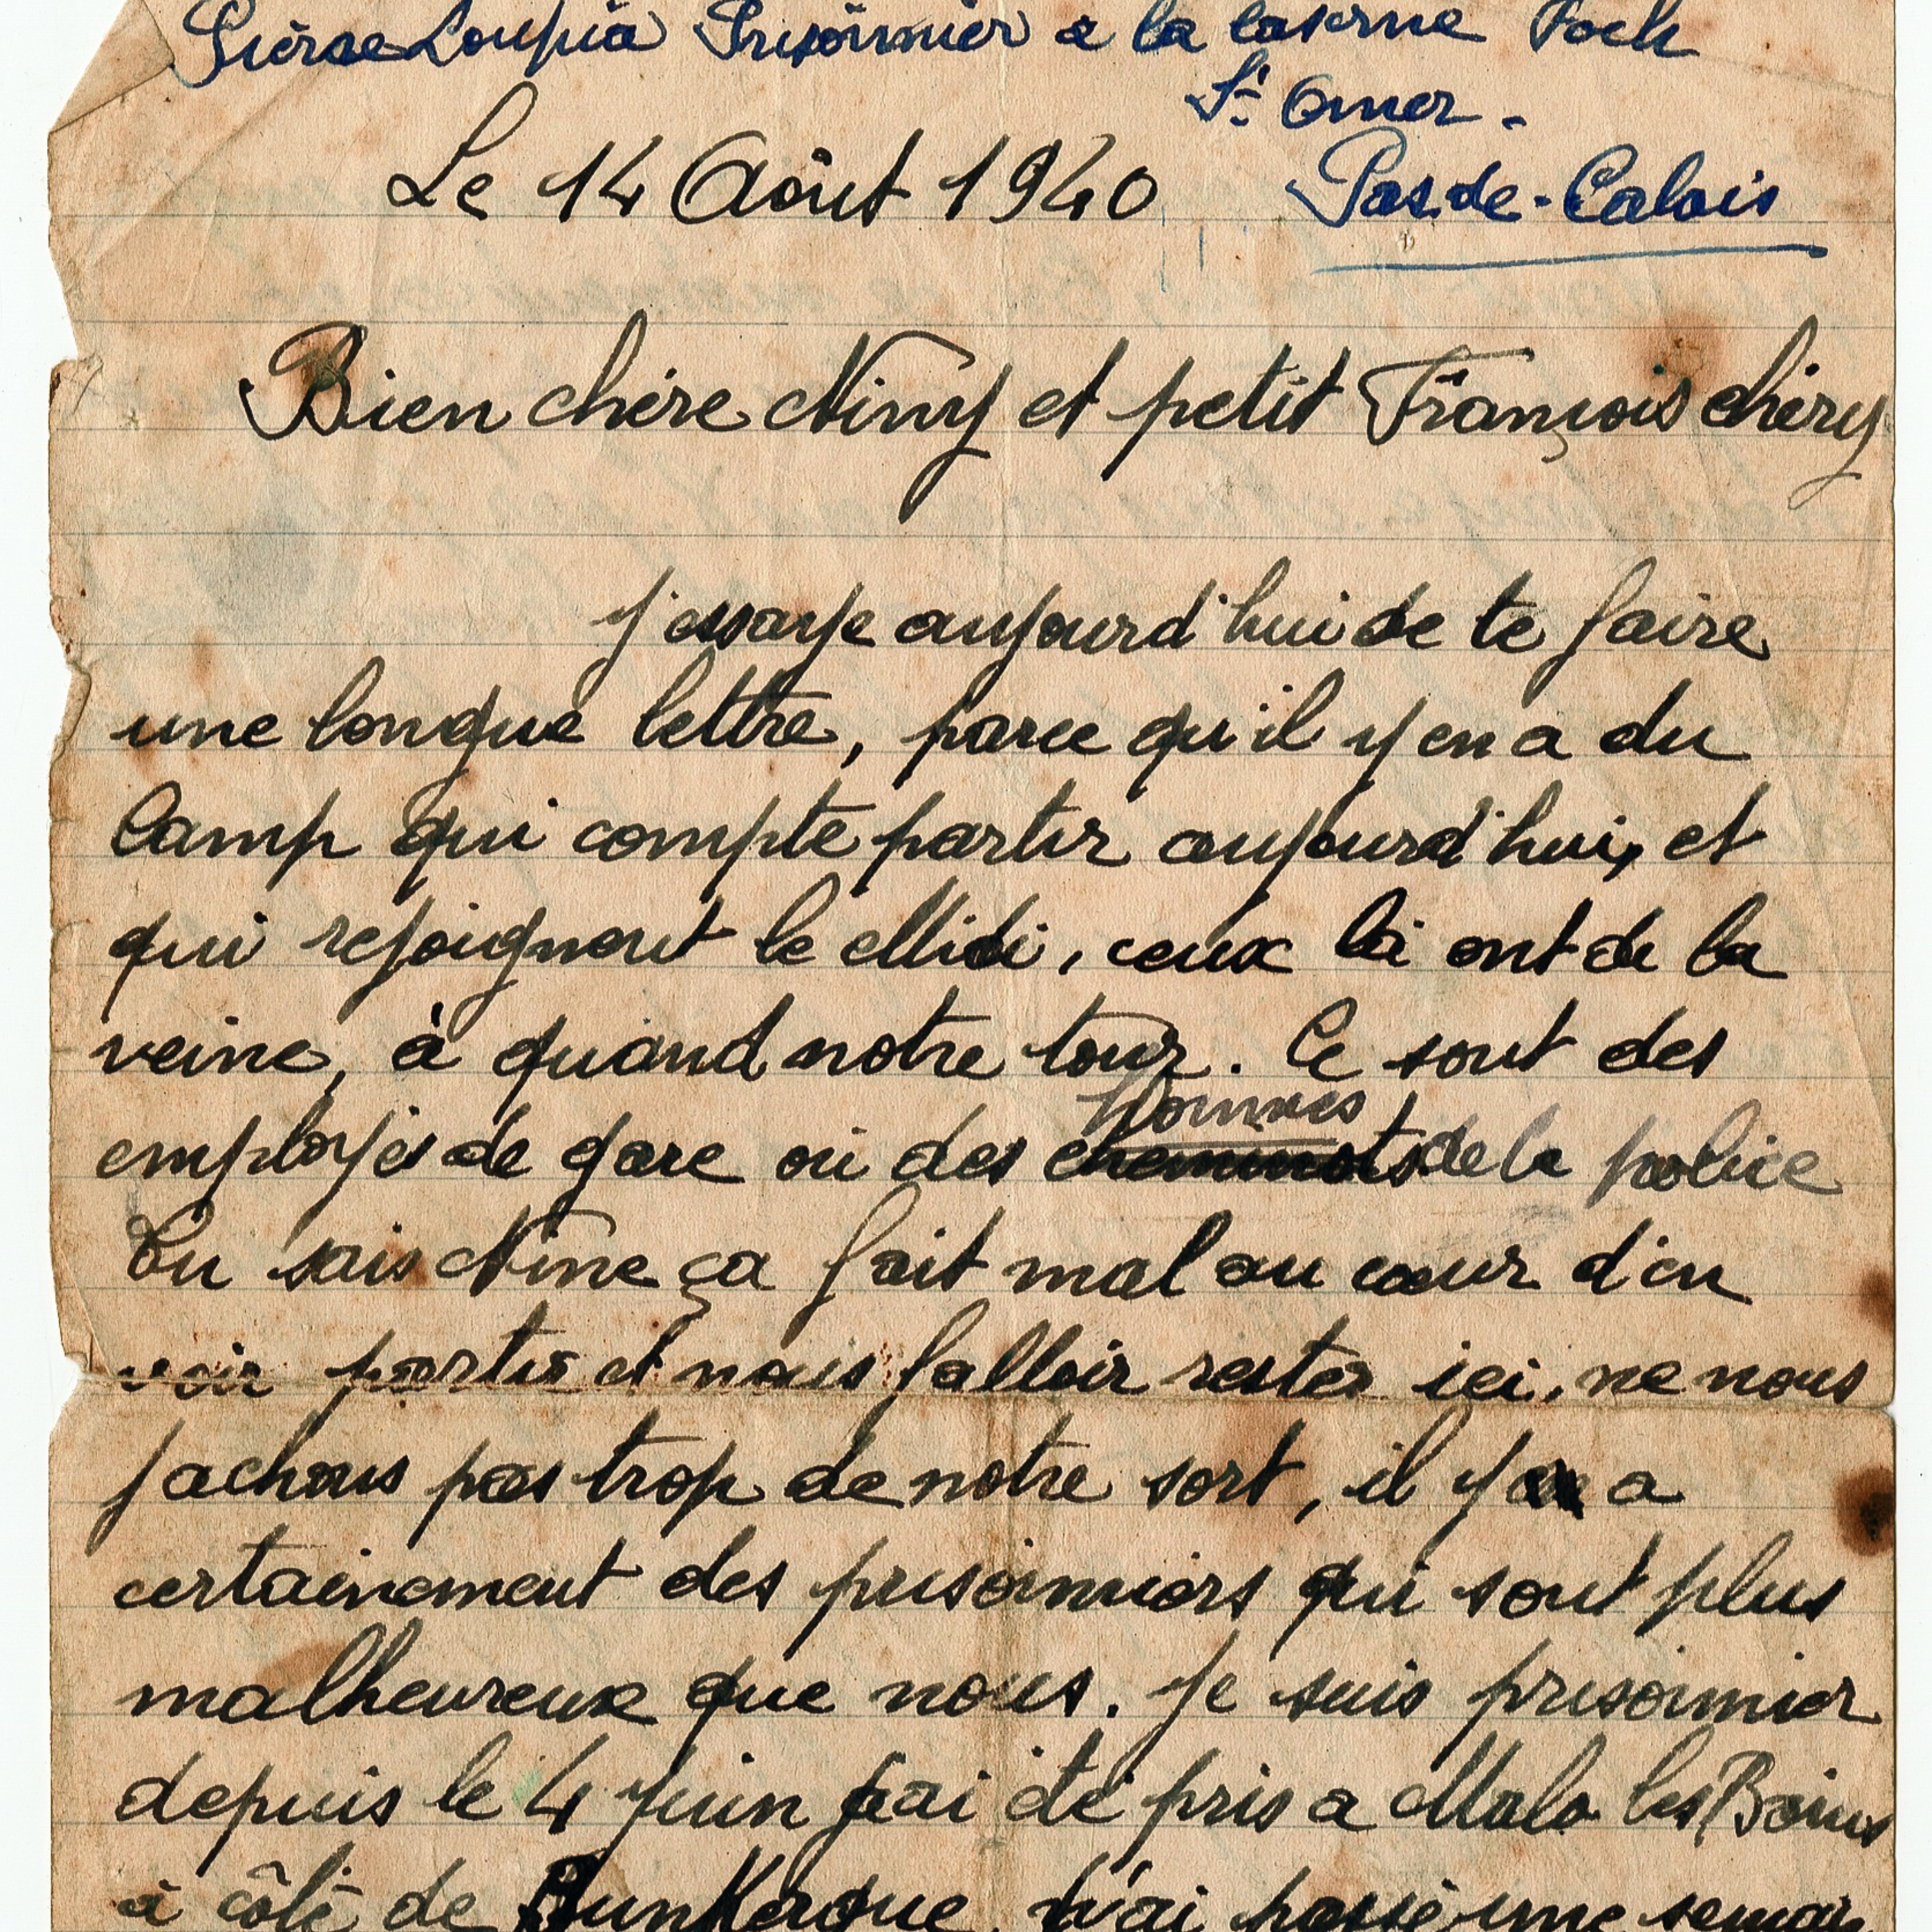 Pierre Loupia Prisonnier a la caserne Foch
St Omer -
Le 14 Août 1940 Pas.de-Calais
Bien chère Niny et petit François chéry
J'essaye aujourd'hui de te faire
une longue lettre, parce qu'il y en a du
Camp qui compte partir aujourd'hui, et
qui rejoignent le Midi, ceux là ont de la
veine, à quand notre tour. Ce sont des
hommes
employés de gare ou des cheminots de la police
Tu sais Nine ça fait mal au cœur d'en
voir partir et nous falloir rester ici, ne nous
fachons pas trop de notre sort, il y a
certainement des prisonniers qui sont plus
malheureux que nous. Je suis prisonnier
depuis le 4 Juin j'ai été pris a Malo les Bains
à côté de Dunkerque. J'ai passé une semai